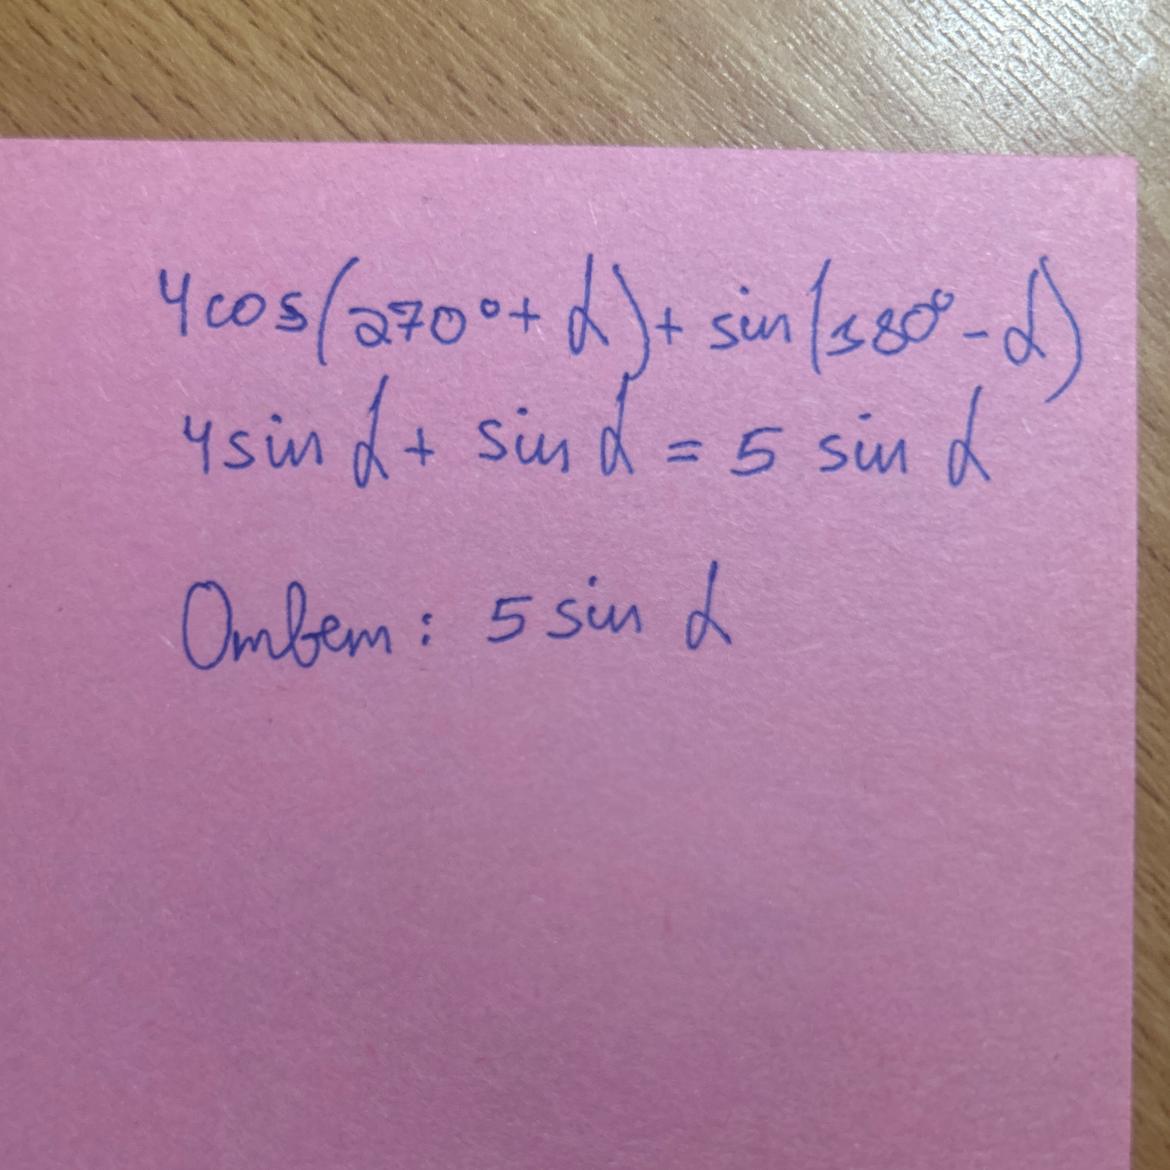 4cos(270°+ α)+ sin(180° - α)
4sin α + sin α = 5 sin α
Ответ: 5 sin α